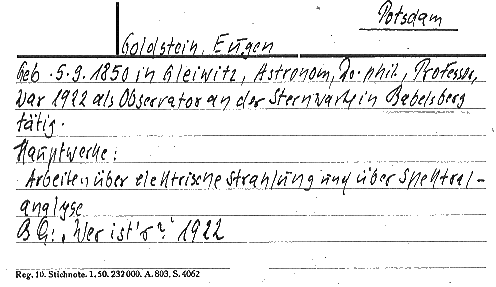 Potsdam
Goldstein, Eugen
Geb. 5.9.1850 in Gleiwitz, Astronom, Dr. phil., Professor,
war 1922 als Observator an der Sternwarte in Babelsberg
tätig.
Hauptwerke:
Arbeiten über elektrische Strahlung und über Spektral-
analyse
BG: "Wer ist's?" 1922
Reg. 10. Stichnote. 1. 50. 232000. A. 803. S. 4062